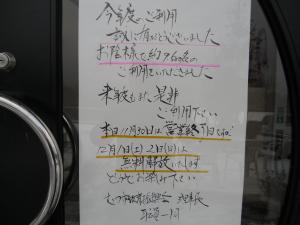 今年度のご利用
誠に有がとうございました
お陰様で約760名の
ご利用をいただきました
来年度もまた是非
ご利用下さい
本日11月30日は営業終了日です。
12月1日(土) 2日(日)は
無料開放いたします
どうぞお楽み下さい